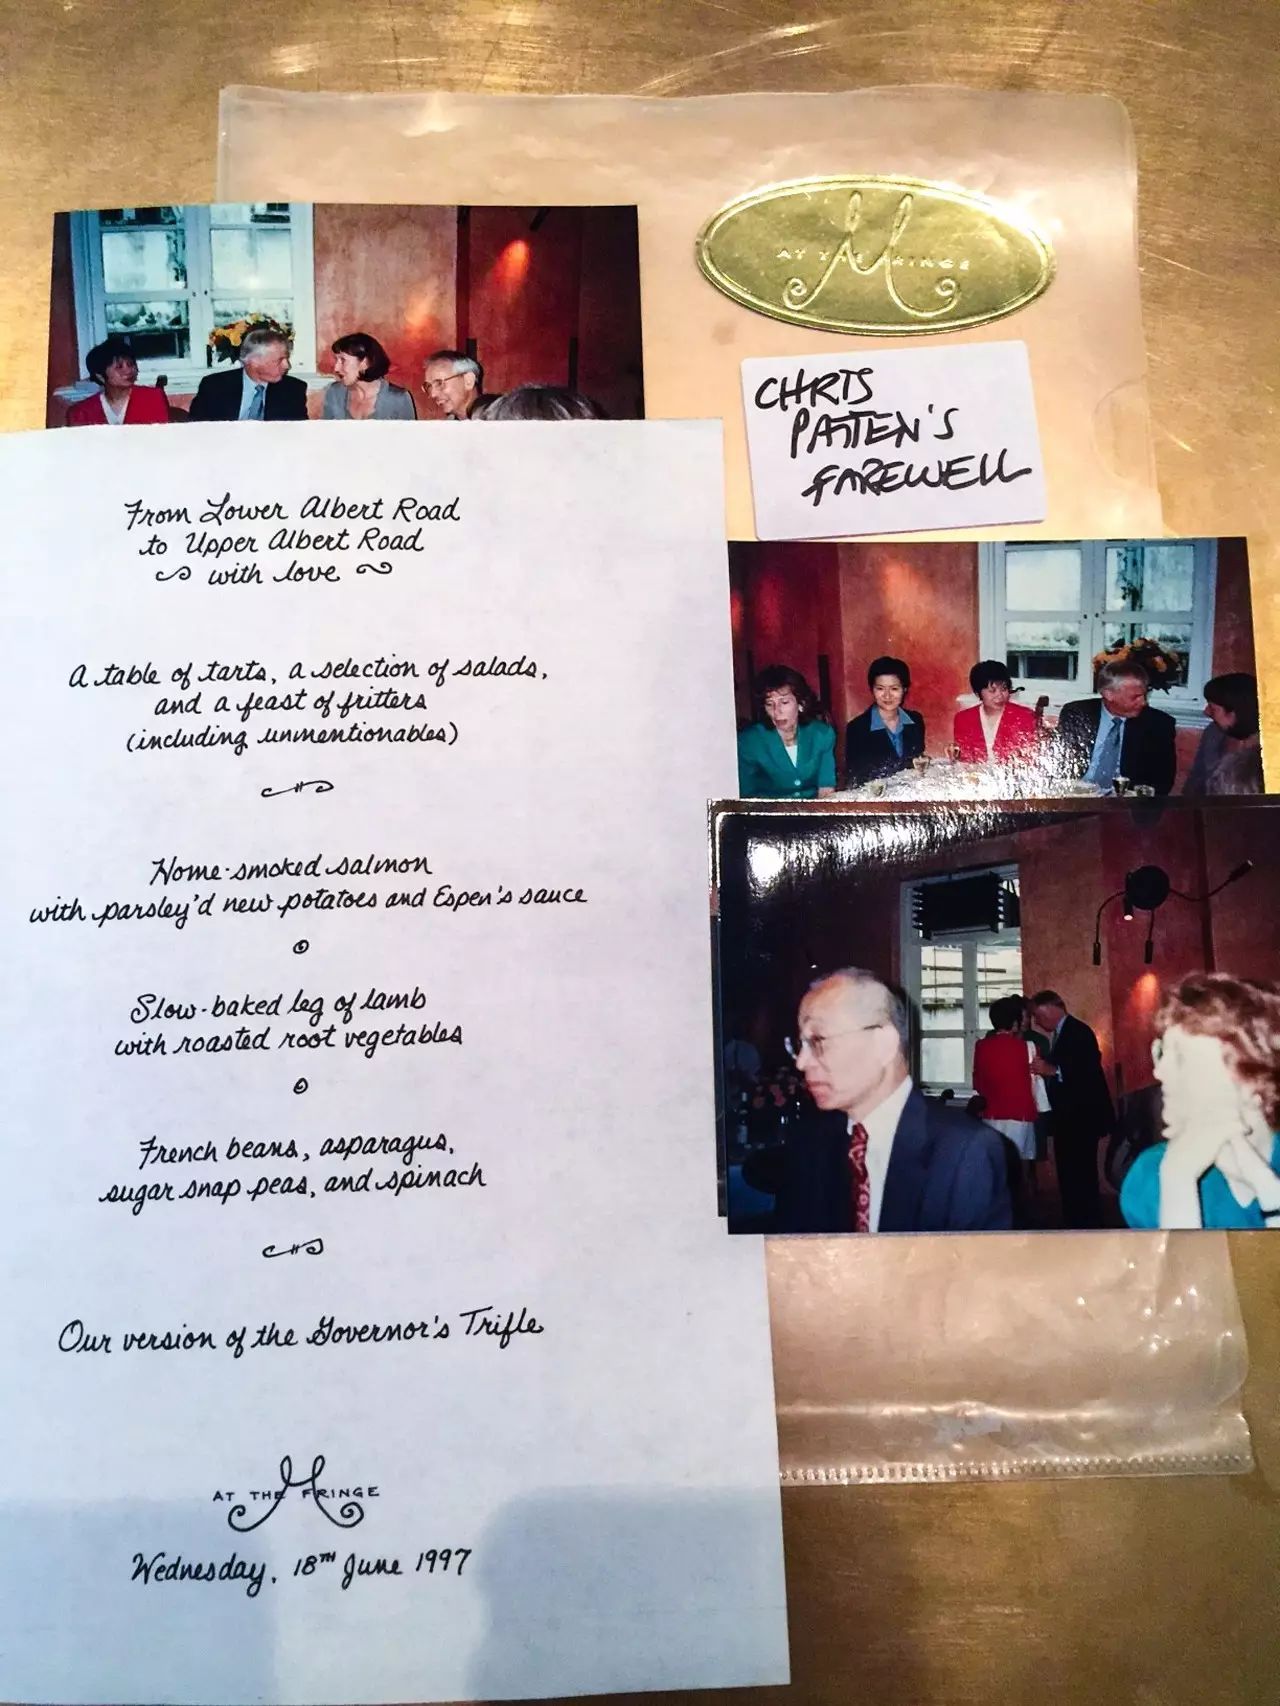 AT THE FRINGE
M
CHRIS
PATTEN'S
FAREWELL
From Lower Albert Road
to Upper Albert Road
with love
A table of tarts, a selection of salads,
and a feast of fritters
(including unmentionables)
Home-smoked salmon
with parsley'd new potatoes and Espen's sauce
Slow-baked leg of lamb
with roasted root vegetables
French beans, asparagus,
sugar snap peas, and spinach
Our version of the Governor's Trifle
M
AT THE FRINGE
Wednesday, 18TH June 1997